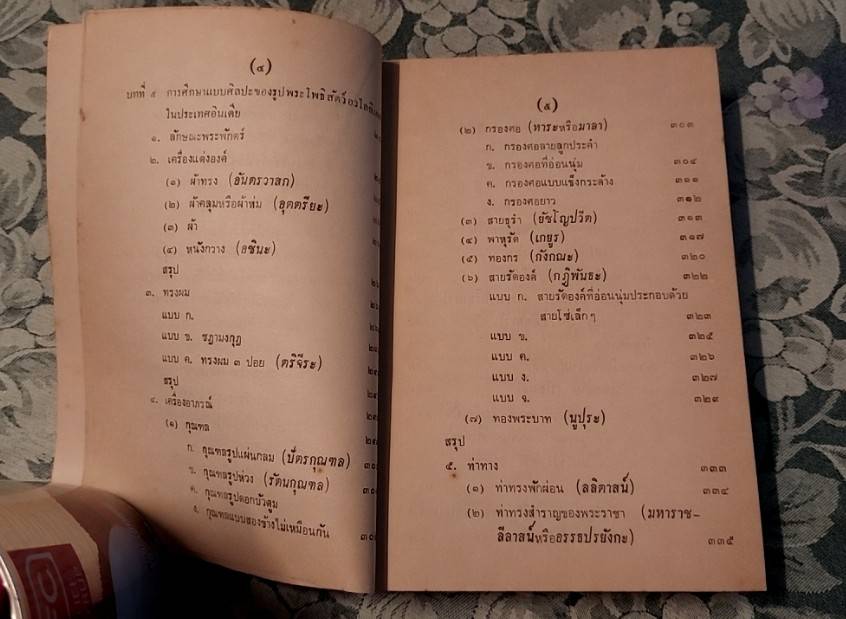 (๔)
บทที่ ๕ การศึกษาแบบศิลปะของรูปพระโพธิสัตว์
ในประเทศอินเดีย
๑. ลักษณะพระพักตร์
๒. เครื่องแต่งองค์
(๑) ผ้าทรง (อันตรวาสก)
(๒) ผ้าคลุมหรือผ้าห่ม (อุตตรียะ)
(๓) ผ้า
(๔) หนังกวาง (อชินะ)
สรุป
๓. ทรงผม
แบบ ก.
แบบ ข. ชฎามงกุฎ
แบบ ค. ทรงผม ๓ ปอย (ตริจีระ)
สรุป
๔. เครื่องอาภรณ์
(๑) กุณฑล
ก. กุณฑลรูปแผ่นกลม (ปัตรกุณฑล)
ข. กุณฑลรูปห่วง (รัตนกุณฑล)
ค. กุณฑลรูปดอกบัวตูม
ง. กุณฑลแบบสองข้างไม่เหมือนกัน
(๕)
(๒) กรองศอ (หาระหรือมาลา) ๓๐๓
ก. กรองศอลายลูกประคำ
ข. กรองศอที่อ่อนนุ่ม ๓๐๔
ค. กรองศอแบบแข็งกระด้าง ๓๑๑
ง. กรองศอยาว ๓๑๒
(๓) สายธุรำ (ยัชโญปวีต) ๓๑๓
(๔) พาหุรัด (เกยูร) ๓๑๗
(๕) ทองกร (กังกณะ) ๓๒๐
(๖) สายรัดองค์ (กฎิพันธะ) ๓๒๒
แบบ ก. สายรัดองค์ที่อ่อนนุ่มประกอบด้วย
สายโซ่เล็กๆ ๓๒๓
แบบ ข. ๓๒๕
แบบ ค. ๓๒๖
แบบ ง. ๓๒๗
แบบ จ. ๓๒๙
(๗) ทองพระบาท (นูปุระ)
สรุป
๕. ท่าทาง ๓๓๓
(๑) ท่าทรงพักผ่อน (ลลิตาสน์) ๓๓๔
(๒) ท่าทรงสำราญของพระราชา (มหาราช-
ลีลาสน์หรืออรรธปรยังกะ) ๓๓๕